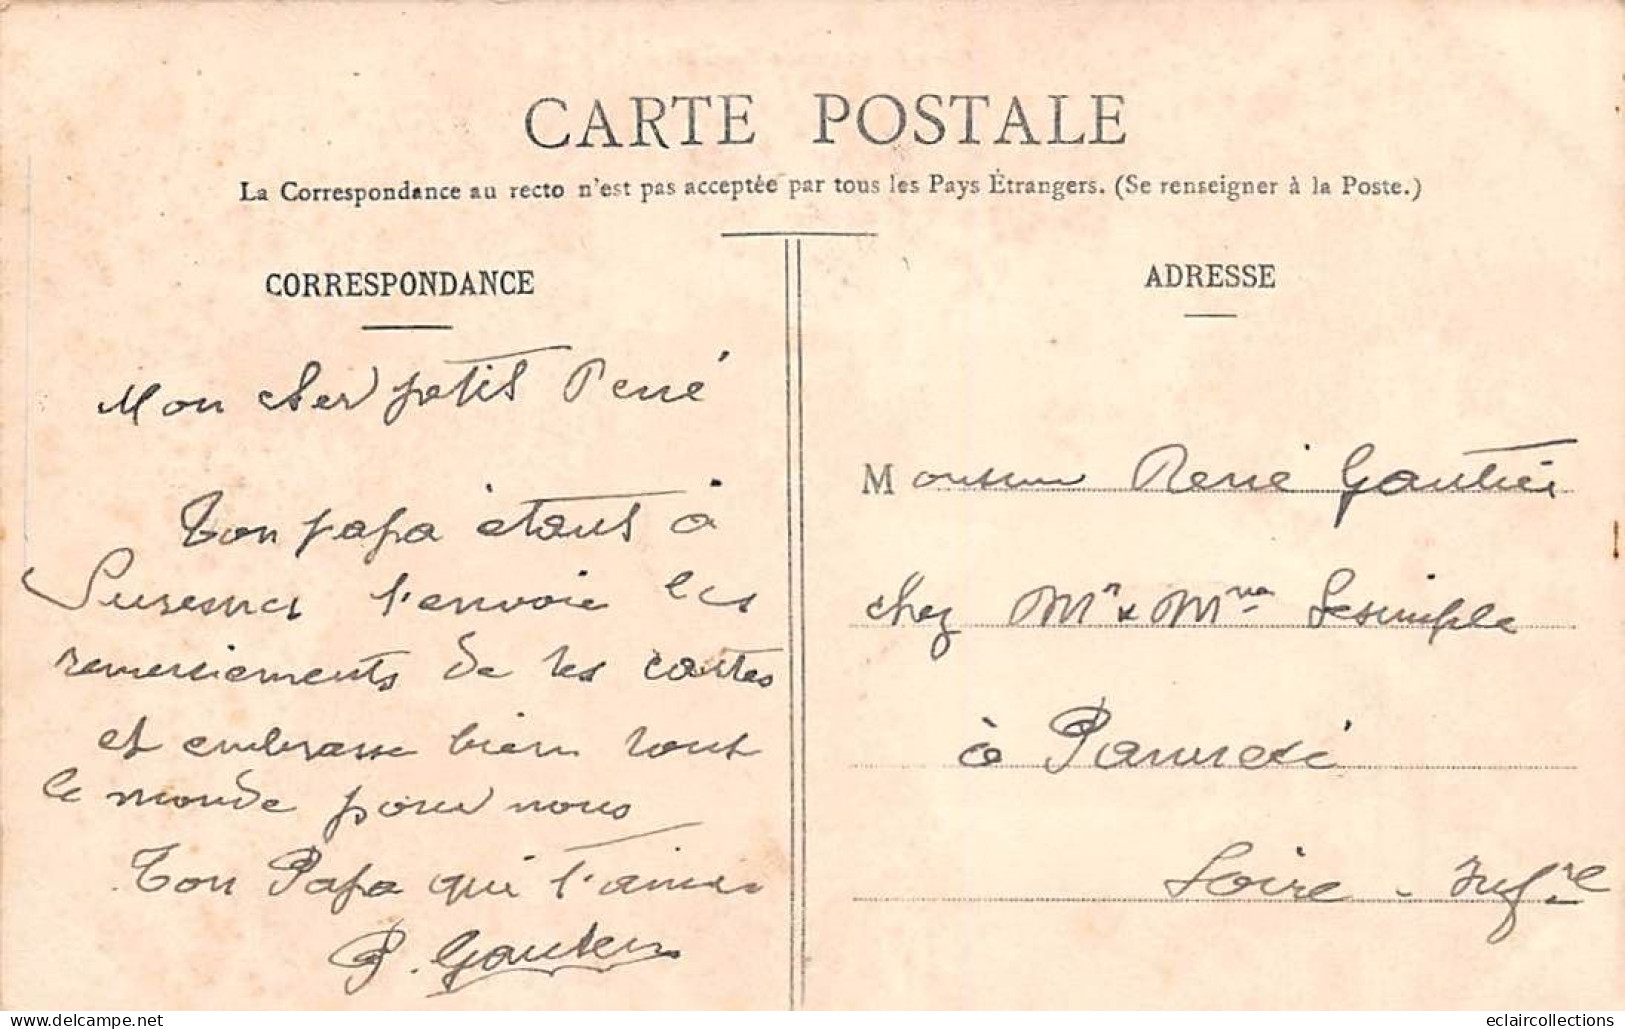 CARTE POSTALE
La Correspondance au recto n'est pas acceptée par tous les Pays Étrangers. (Se renseigner à la Poste.)
CORRESPONDANCE
Mon cher petit René
Ton papa étant à
Suresnes t'envoie les
remerciements de tes cartes
et embrasse bien tout
le monde pour nous
Ton Papa qui t'aime
P. Gautier
ADRESSE
Monsieur René Gautier
chez Mr & Mme Lesimple
à Pannecé
Loire-Infre
delcampe.net
eclaircollections